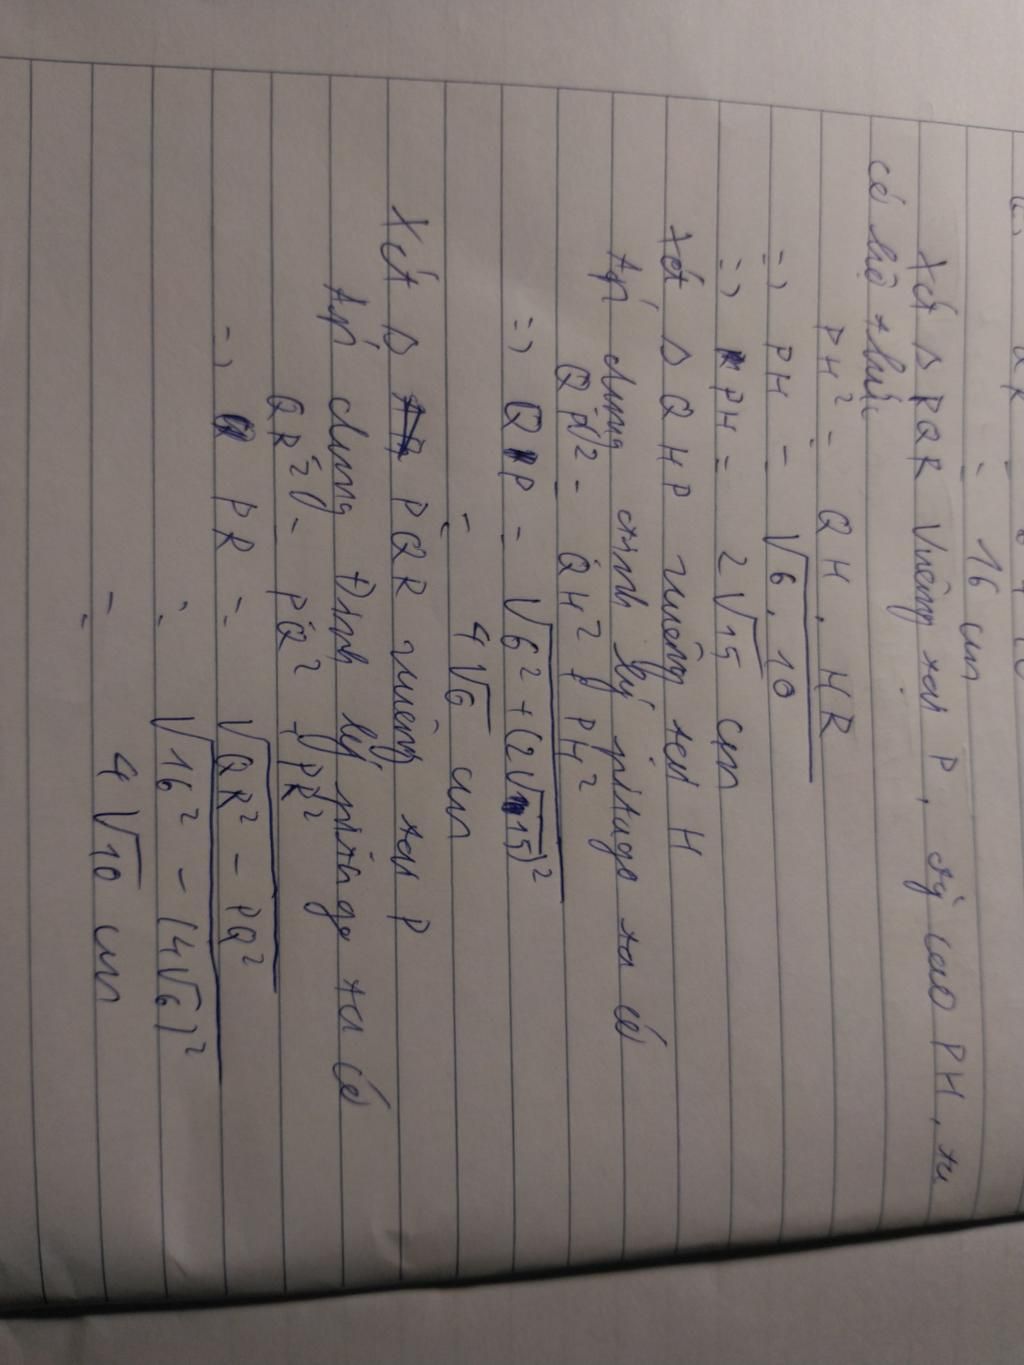 = 16 cm
Xét Δ PQR Vuông tại P, đg cao PH, ta
có hệ thức
PH² = QH . HR
=> PH = √6.10
=> PH = 2√15 cm
Xét Δ QHP vuông tại H
Áp dụng định lý pitago ta có
QP² = QH² + PH²
=> QP = √6² + (2√15)²
= 4√6 cm
Xét Δ PQR vuông tại P
Áp dụng Định lý pitago ta có
QR² = PQ² + PR²
=> PR = √QR² - PQ²
= √16² - (4√6)²
= 4√10 cm